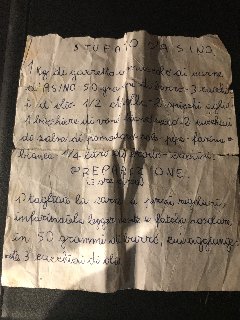 STUFATO D'ASINO
1 Kg di garretto o muscolo di carne
d'ASINO 50 gra di burro 3 cucchi
di olio 1/2
1 bicchiere di vino 2 cucchiai
di salsa di pomodoro sale pepe farina
bianca 1/2 litro di brodo
PREPARAZIONE
(3 ore
Tagliate la carne a pezzi regolari,
infarinatela leggermente e fatela rosolare
in 50 grammi di burro, cui aggiunge
rete 3 cucchiai di olio